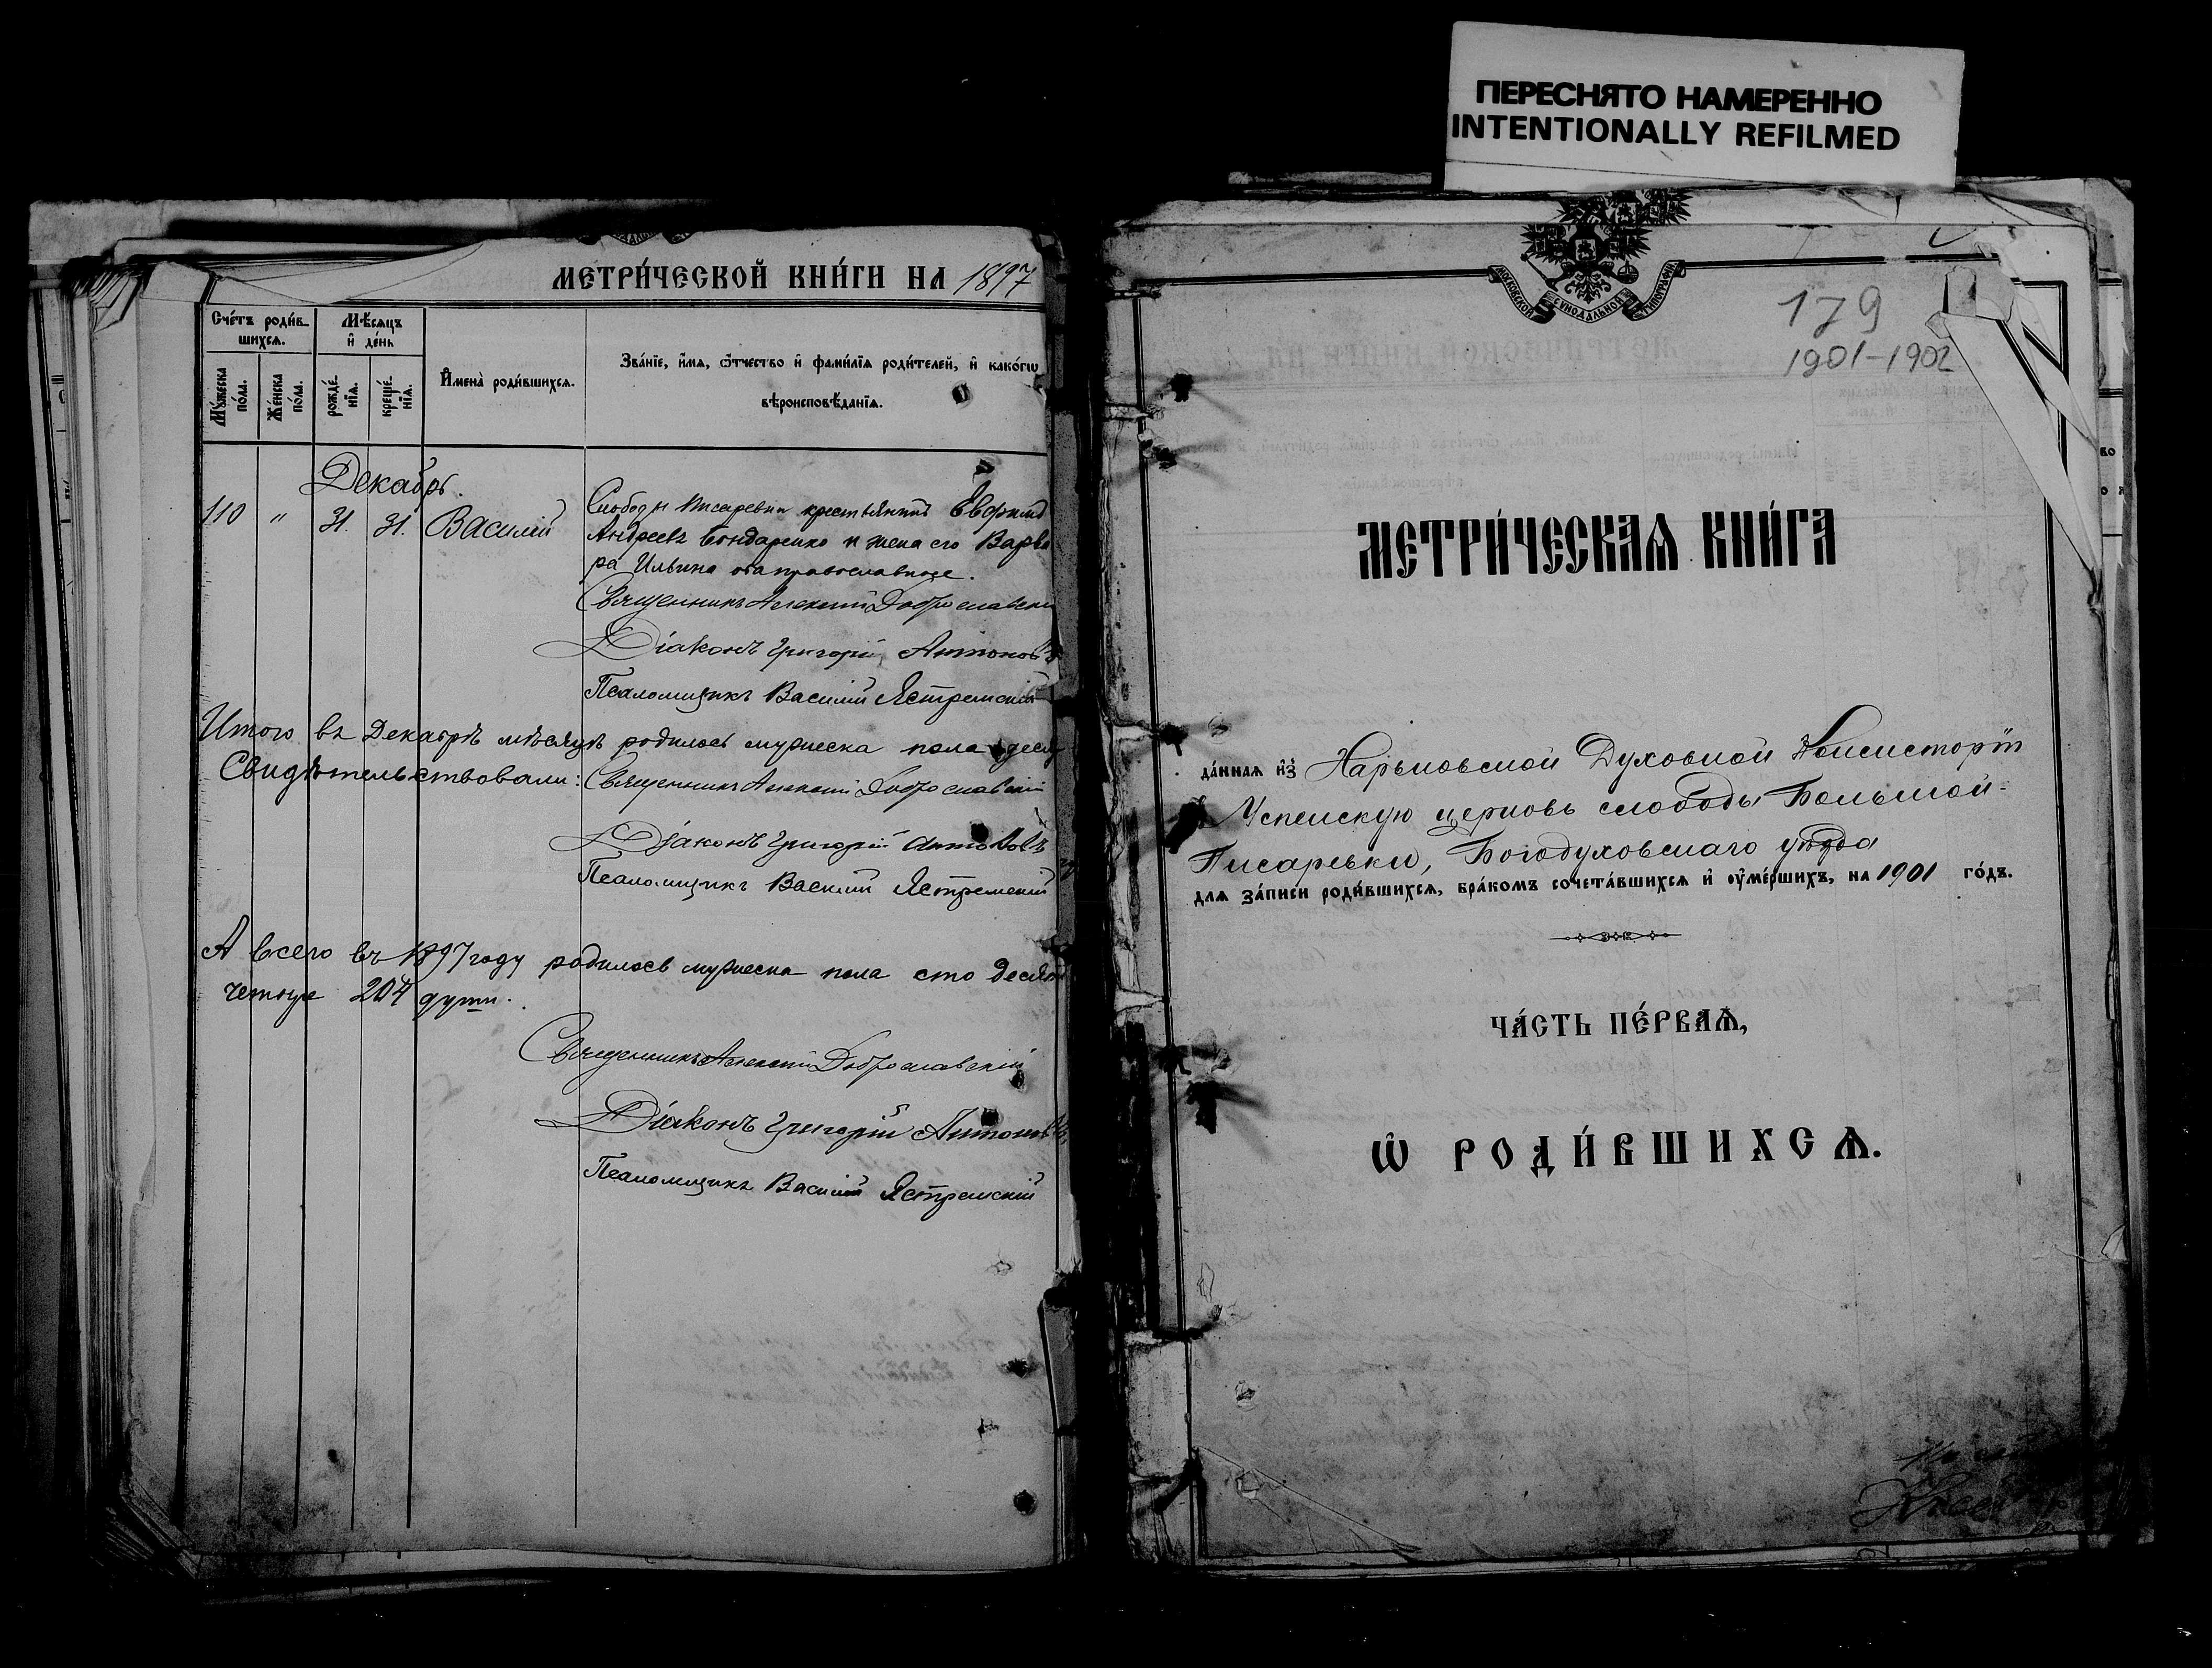 ПЕРЕСНЯТО НАМЕРЕННО
INTENTIONALLY REFILMED
МЕТРИ́ЧЕСКОЙ КНИ́ГИ НА 1897
Сче́тъ роди́в-
шихсѧ.
Мѣ́сѧцъ
и҆ де́нь
Мꙋ́жеска
по́ла.
Же́нска
по́ла.
рожде́-
нїѧ.
креще́-
нїѧ.
И҆мена̀ роди́вшихсѧ.
Зва́нїе, и҆́мѧ, ѻ҆́тчество и҆ фами́лїѧ роди́телей, и҆ како́гѡ
вѣроисповѣ́данїѧ.
Декабрь.
110 " 31. 31. Василій
Слободы Писаревки крестьянинъ Евфимъ
Андреевъ Бондаренко и жена его Варва
ра Ильина оба православные.
Священникъ Алексій Доброславскі
Діаконъ Григорій Антоновъ
Псаломщикъ Василій Ястремскій
Итого въ Декабрѣ мѣсяцѣ родилось мужеска пола деся
Свидѣтельствовали: Священникъ Алексій Доброславскій
Діаконъ Григорій Антоновъ
Псаломщикъ Василій Ястремскій
А всего въ 1897 году родилось мужеска пола сто десят
четыре 204 души.
Священникъ Алексій Доброславскій
Діаконъ Григорій Антоновъ
Псаломщикъ Василій Ястремскій
МОСКОВСКОЙ СѴНОДАЛЬНОЙ ТИПОГРАФІИ
179
1901-1902
МЕТРИ́ЧЕСКАѦ КНИ́ГА
да́ннаѧ и҆з̾ Харьковской Духовной Консисторіи
Успенскую церковь слободы Большой-
Писаревки, Богодуховскаго уѣзда
длѧ за́писи роди́вшихсѧ, бра́комъ сочета́вшихсѧ и҆ оу҆ме́ршихъ, на 1901 го́дъ.
ЧА́СТЬ ПЕ́РВАѦ,
Ѡ҆ РОДИ́ВШИХСѦ.